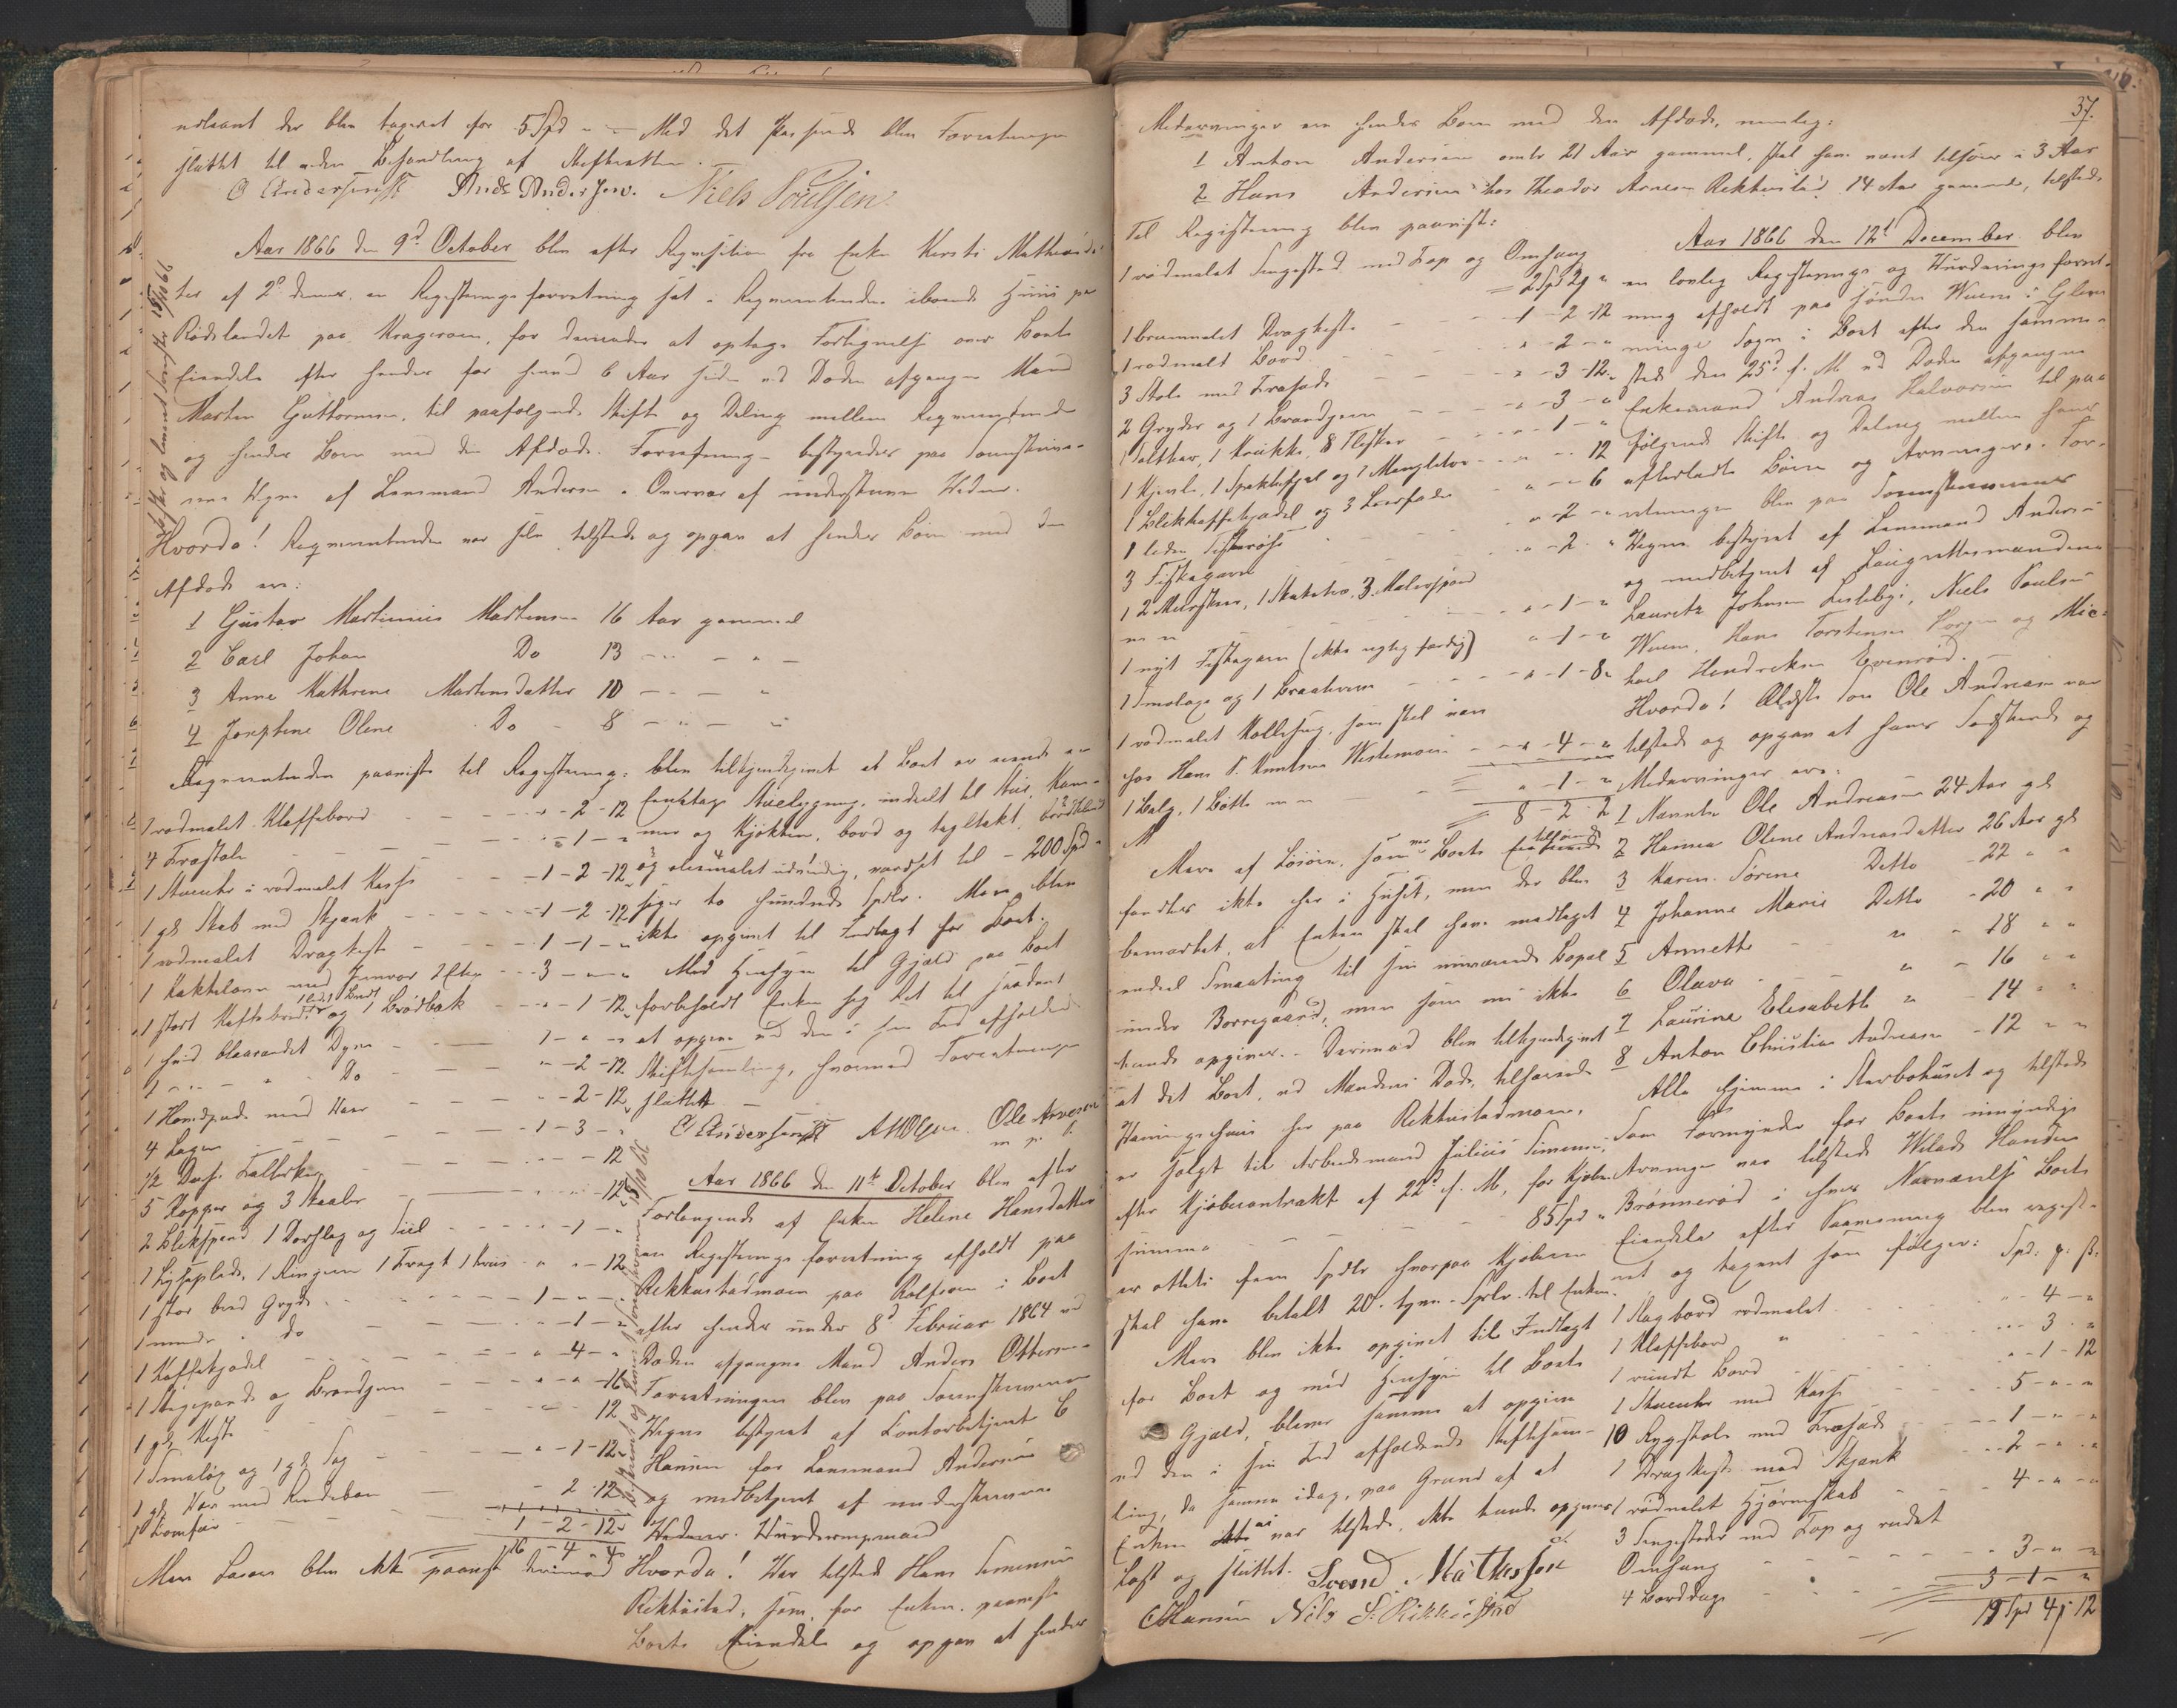 udlaant der blev taxeret for 5 Spd " - Med det Passerede blev Forretningen
sluttet til anden Behandling af Skifteretten.
O Andersen Ands Andersen. Niels Poulsen
Aar 1866 den 9d October blev efter Reqvisition fra Enken Kersti Mathiasdat-
ter af 2d dennes, en Registreringsforretning sat i Reqvirentindens iboende Huus paa
Rødslandet paa Kragerøen, for derunder at optage Fortegnelse over Boets
Eiendele efter hendes for henved 6 Aar siden ved Døden afgangne Mand
Morten Guttormsen, til paafølgende Skifte og Deling mellem Reqvirentinden
og hendes Børn med den Afdøde. Forretningen bestyredes paa Sorenskrive-
rens Vegne af Lensmand Andersen i Overvær af underskrevne Vidner.
Hvorda! Reqvirentinden var selv tilstede og opgav at hendes Børn med den
Afdøde ere:
1 Gustav Martinius Martensen 16 Aar gammel
2 Carl Johan Do 13 - " - " -
3 Anne Kathrine Martensdatter 10 - " - "
4 Josephine Olene Do 8 - " - "
Reqvirentinden paaviste til Registrering:
1 rødmalet Klaffebord - " - 2 - 12
4 Træstole " - 1 - "
1 Stueuhr i rødmalet Kasse 1 - 2 - 12
1 gl Skab med Skjænk 1 - 2 - 12
1 rødmalet Dragkiste 1 - 1 - "
1 Kakkelovn med Jernrør 2 Etag 3 - " - "
1 stort Kaffebret og 1 Brødbak " - 1 - 12
1 hvid blaarandet Dyne 1 - " - "
1 " - " Do " - 2 - 12
1 Hovedpude med Vaar - 2 - 12
4 Lagen 1 - 3 - "
1/2 Dus. Tallerkener " - " - 12
5 Kopper og 3 Skaaler " - " - 12
2 Blikspand 1 Dørslag og Siil - 1 - "
1 Lysepladt, 1 Ringjern 1 Tragt 1 Kruus " - " - 12
1 stor bred Gryde 1 - " - "
1 mindre " do " - 1 - "
1 Kaffekjedel " - 4 - "
1 Stegepande og Brandjern " - " - 16
1 gl Kiste " - " 12
1 Smaløx og 1 gl Sag " - 1 - 12
1 gl Væv med Rendebom - 2 - 12
1 Komfur 1 - 2 - 12
16 - 4 - 4
Mere Løsøre blev ikke paavist, derimod
blev tilkjendegivet at Boet er eiende en
Enetages Stuebygning, inddelt til Stue, Kam-
mer og Kjøkken, bord og tagtækt, bordklædt
og oliemalet udvendig, værdsat til - 200 Spd
siger to hundrede Spdlr. Mere blev
ikke opgivet til Indtægt for Boet.
Med Hensyn til Gjæld paa Boet
forbeholdt Enken sig Ret til saadant
at opgive ved den i sin Tid afholdende
Skiftesamling, hvormed Forretningen
sluttet. -
O Andersen A M Olsen. Ole Arvesen
m. p. P.
Aar 1866 den 11te October blev efter
Forlangende af Enken Helene Hansdatter
en Registreringsforretning afholdt paa
Rekkustadmoen paa Rolfsøen i Boet
efter hendes under 8d Februar 1864 ved
Døden afgangne Mand Anders Ottersen.
Forretningen blev paa Sorenskriverens
Vegne bestyret af Contorbetjent C
Hansen for Lensmand Andersen
og medbetjent af underskrevne
Vidner. Vurderingsmænd
Hvorda! Var tilstede Hans Simensen
Rekkustad, som for Enken paaviste
Boets Eiendele og opgav at hendes
37.
Medarvinger ere hendes Børn med den Afdøde, nemlig:
1 Anton Andersen omtr 21 Aar gammel, skal have været tilsøes i 3 Aar
2 Hans Andersen hos Theodor Arnesen Rekkustad 14 Aar gammel, tilstede
Til Registrering blev paavist:
1 rødmalet Sengested med Top og Omhæng
2 Spd 2 "
1 brunmalet Dragkiste 1 - 2 - 12
1 rødmalt Bord " - 2 - "
3 Stole med Træsæde " - 3 - 12
2 Gryder og 1 Brandjern " - 3 - "
1 Saltkar, 1 Krukke, 8 Flasker " - 1 - "
1 Kjevle, 1 Spækkefjel og 1 Mangletræ " - " 12
1 Blikkaffekjedel og 3 Leerfade " - " 6
1 liden Fiskerøse " - 2 - "
3 Fiskegarn " - 2 - "
1 2 Murskeer, 1 Skaketræ, 3 Malerspand
m m " - 1 - "
1 nyt Fiskegarn (ikke rigtig færdig) " - 1 - "
1 Smoløxe og 1 Braatømm " - 1 - 8
1 rødmalet Rolleseng, som skal være
hos Hans P. Knutsen Vestemoen " - 4 - "
1 Balg, 1 Bøtte m m " - 1 - "
8 - 2 - 2
Mere af Løsøre, som Boets tilhørende
fandtes ikke her i Huset, men der blev
bemærket, at Enken skal have medtaget
endeel Smaating til sin nuværende Bopæl
under Borregaard, men som nu ikke
kunde opgives. - Derimod blev tilkjendegivet
at det Boet, ved Mandens Død, tilhørende
Vaaningshuus her paa Rekkustadmoen,
er solgt til Arbeidsmand Julius Simensen,
efter Kjøbecontrakt af 22d f. M., for Kjøbe-
summa - - 85 Spd "
er otteti fem Spdlr hvorpaa Kjøberen
skal have betalt 20 - tyve - Spdlr til Enken.
Mere blev ikke opgivet til Indtægt
for Boet og med Hensyn til Boets
Gjæld, bliver samme at opgive
ved den i sin Tid afholdende Skiftesam-
ling, da samme idag, paa Grund af at
Enken ei var tilstede, ikke kunde opgives
Læst og sluttet. Svend Mathesen
CHansen Nils S. Rekkustad
Aar 1866 den 12te December blev
en lovlig Registrerings og Vurderingsforret-
ning afholdt paa søndre Vuem i Glem-
minge Sogn i Boet efter den samme-
steds den 25d f. M. ved Døden afgangne
Enkemand Andreas Halvorsen til paa-
følgende Skifte og Deling mellem hans
efterladte Børn og Arvinger. For-
retningen blev paa Sorenskriverens
Vegne bestyret af Lensmand Andersen
og medbetjent af Laugrettesmændene
Lauritz Johnsen Lisleby, Niels Paulsen
Vuem, Hans Torstensen Horgen og Mic-
hael Hendriksen Evenrød.
Hvorda! Ældste Søn Ole Andreasen var
tilstede og opgav at hans Sødskende og
Medarvinger ere:
1 Nævnte Ole Andreasen 24 Aar gl
2 Hanna Olene Andreasdatter 26 Aar gl
3 Karen Sørine Detto - 22 " "
4 Johanne Marie Detto - 20 " "
5 Annette " - 18 " "
6 Olava " - 16 " "
7 Laurine Elisabeth " - 14 " "
8 Anton Christian Andreasen - 12 " "
Alle hjemme i Stervbohuset og tilstede
Som Formynder for Boets umyndige
Arvinger var tilstede Vilads Hansen
Brønnerød i hvis Nærværelse Boets
Eiendele efter Paavisning blev registre-
ret og taxeret som følger: Spd: q: ß:
1 Slagbord rødmalet " - 4 - "
1 Klaffebord " " - 3 - "
1 rundt Bord " - 1 - 12
1 Stueuhr med Kasse 5 - " - "
10 Rygstole med Træsæde 1 - " - "
1 Dragkiste med Skjænk 2 - " - "
1 rødmalet Hjørneskab 4 - " - "
3 Sengesteder med Top og rudet
Omhæng 3 - " - "
4 Bordduge 3 - 1 - "
19 Spd 4 12